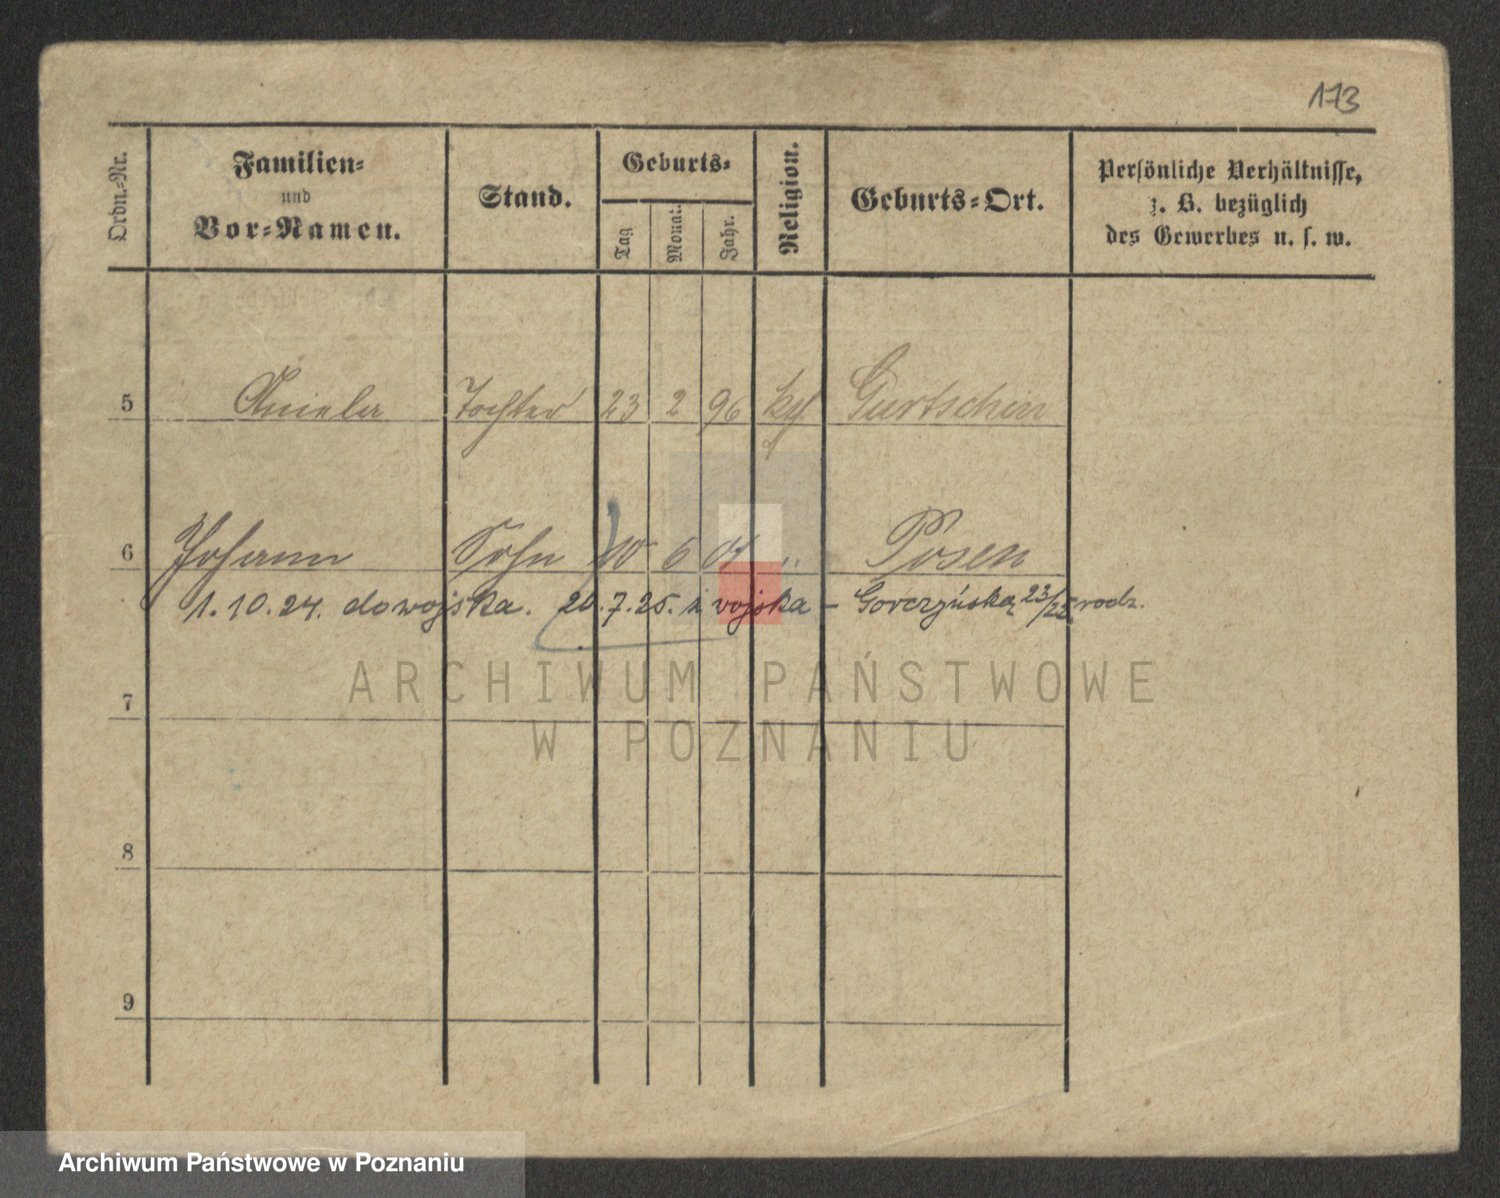 173
Ordn.-Nr.
Familien-
und
Vor-Namen.
Stand.
Geburts-
Tag
Monat.
Jahr.
Religion.
Geburts-Ort.
Persönliche Verhältnisse,
z. B. bezüglich
des Gewerbes u. s. w.
5 Aniela Tochter 23 2 96 kath Gurtschin
6 Johann Sohn 10 6 01 " Posen
1.10.24. do wojska. 20.7.25. z wojska – Gorczyńska 23/25 rodz.
7
8
9
ARCHIWUM PAŃSTWOWE
W POZNANIU
Archiwum Państwowe w Poznaniu